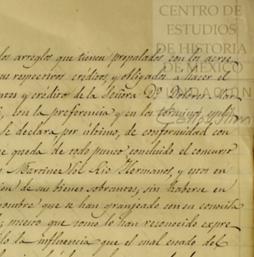 CENTRO DE
ESTUDIOS
DE HISTORIA
DE MÉXICO
los arreglos que tienen propalados con los acree
sus respectivos creditos, y obligados a hacer el
y crédito de la Señora Dª Dolores
con la preferencia y en los terminos
se declara por último, de conformidad con
que queda de todo punto concluido el concurso
Martinez del Rio Hermanos, y estos en
de sus bienes sobrantes, sin haberse en
nombre que se han granjeado con su conocida
como lo han reconocido expre
la influencia que el mal estado del